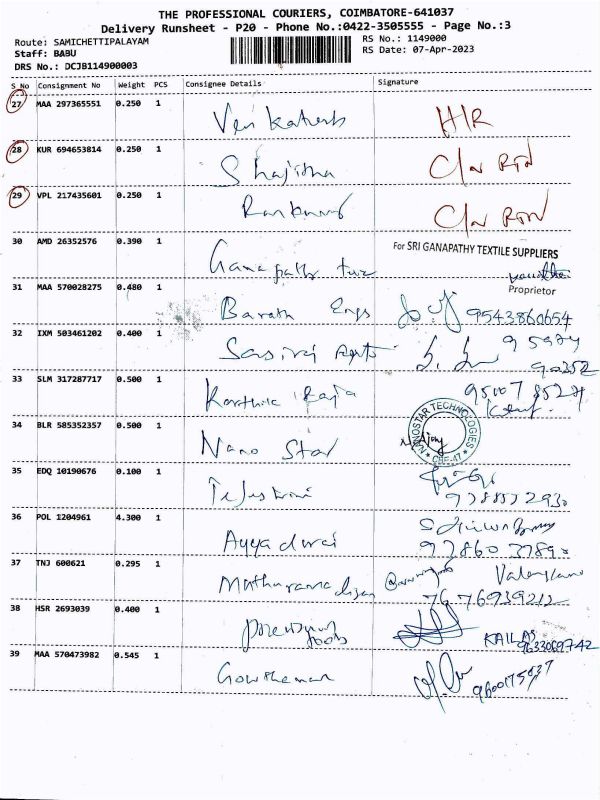 THE PROFESSIONAL COURIERS, COIMBATORE-641037
Delivery Runsheet - P20 - Phone No.:0422-3505555 - Page No.:3
Route: SAMICHETTIPALAYAM
RS No.: 1149000
Staff: BABU
RS Date: 07-Apr-2023
DRS No.: DCJB114900003
S No Consignment No Weight PCS Consignee Details Signature
27 MAA 297365551 0.250 1
Venkatesh H/R
28 KUR 694653814 0.250 1
Shajitha C/n RTN
29 VPL 217435601 0.250 1
Ramkumar C/n RTN
30 AMD 26352576 0.390 1
For SRI GANAPATHY TEXTILE SUPPLIERS
Ganapathy tex
Proprietor
31 MAA 570028275 0.480 1
Barath Engs 9543860654
32 IXM 503461202 0.400 1
Sasiraj Agets
90352
33 SLM 317287717 0.500 1
Karthik Raja
34 BLR 585352357 0.500 1
NANOSTAR TECHNOLOGIES
CBE-47
Nano Star N. Ajay
35 EDQ 10190676 0.100 1
Tejaswini
36 POL 1204961 4.300 1
Ayyadurai
37 TNJ 600621 0.295 1
Muthurama
7676939212
38 HSR 2693039 0.400 1
foods KAILAS
9633069742
39 MAA 570473982 0.545 1
Gowthaman 9600175637